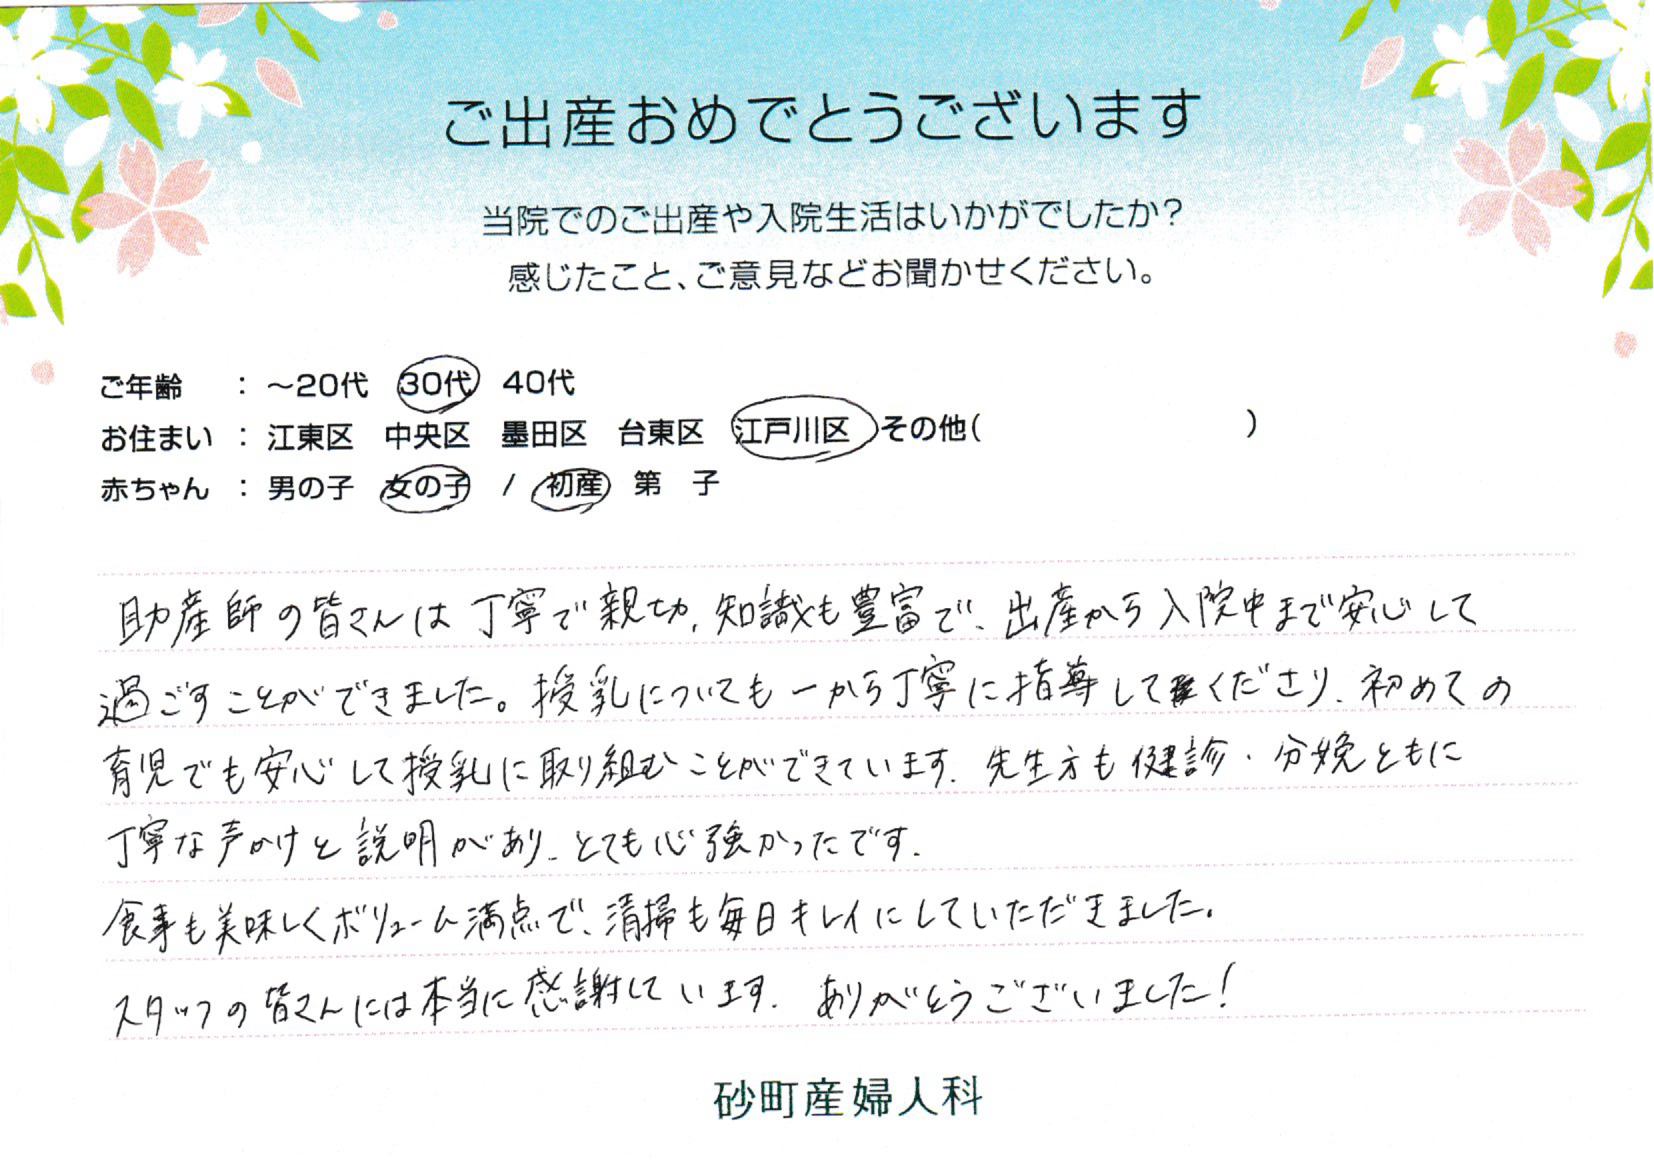 ご出産おめでとうございます
当院でのご出産や入院生活はいかがでしたか?
感じたこと、ご意見などお聞かせください。
ご年齢 : ～20代 30代 40代
お住まい : 江東区 中央区 墨田区 台東区 江戸川区 その他( )
赤ちゃん : 男の子 女の子 / 初産 第 子
助産師の皆さんは丁寧で親切、知識も豊富で、出産から入院中まで安心して
過ごすことができました。授乳についても一から丁寧に指導してくださり、初めての
育児でも安心して授乳に取り組むことができています。先生方も健診・分娩ともに
丁寧な声かけと説明があり、とても心強かったです。
食事も美味しくボリューム満点で、清掃も毎日キレイにしていただきました。
スタッフの皆さんには本当に感謝しています。ありがとうございました!
砂町産婦人科